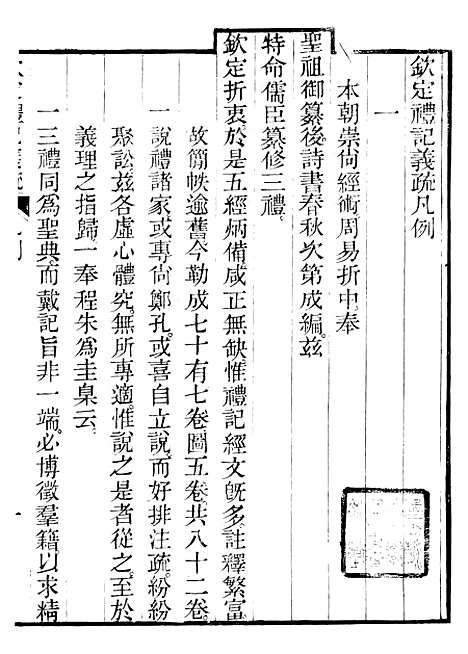 欽定禮記義疏凡例
一
本朝崇尚經術周易折中奉
聖祖御纂後詩書春秋次第成編兹
特命儒臣纂修三禮
欽定折衷於是五經炳備咸正無缺惟禮記經文既多註釋繁富
故簡帙逾舊今勒成七十有七卷圖五卷共八十二卷
一說禮諸家或專尚鄭孔或喜自立說而好排注疏紛紛
聚訟兹各虛心體究無所專適惟說之是者從之至於
義理之指歸一奉程朱爲圭臬云
一三禮同爲聖典而戴記旨非一端必博徵羣籍以求精